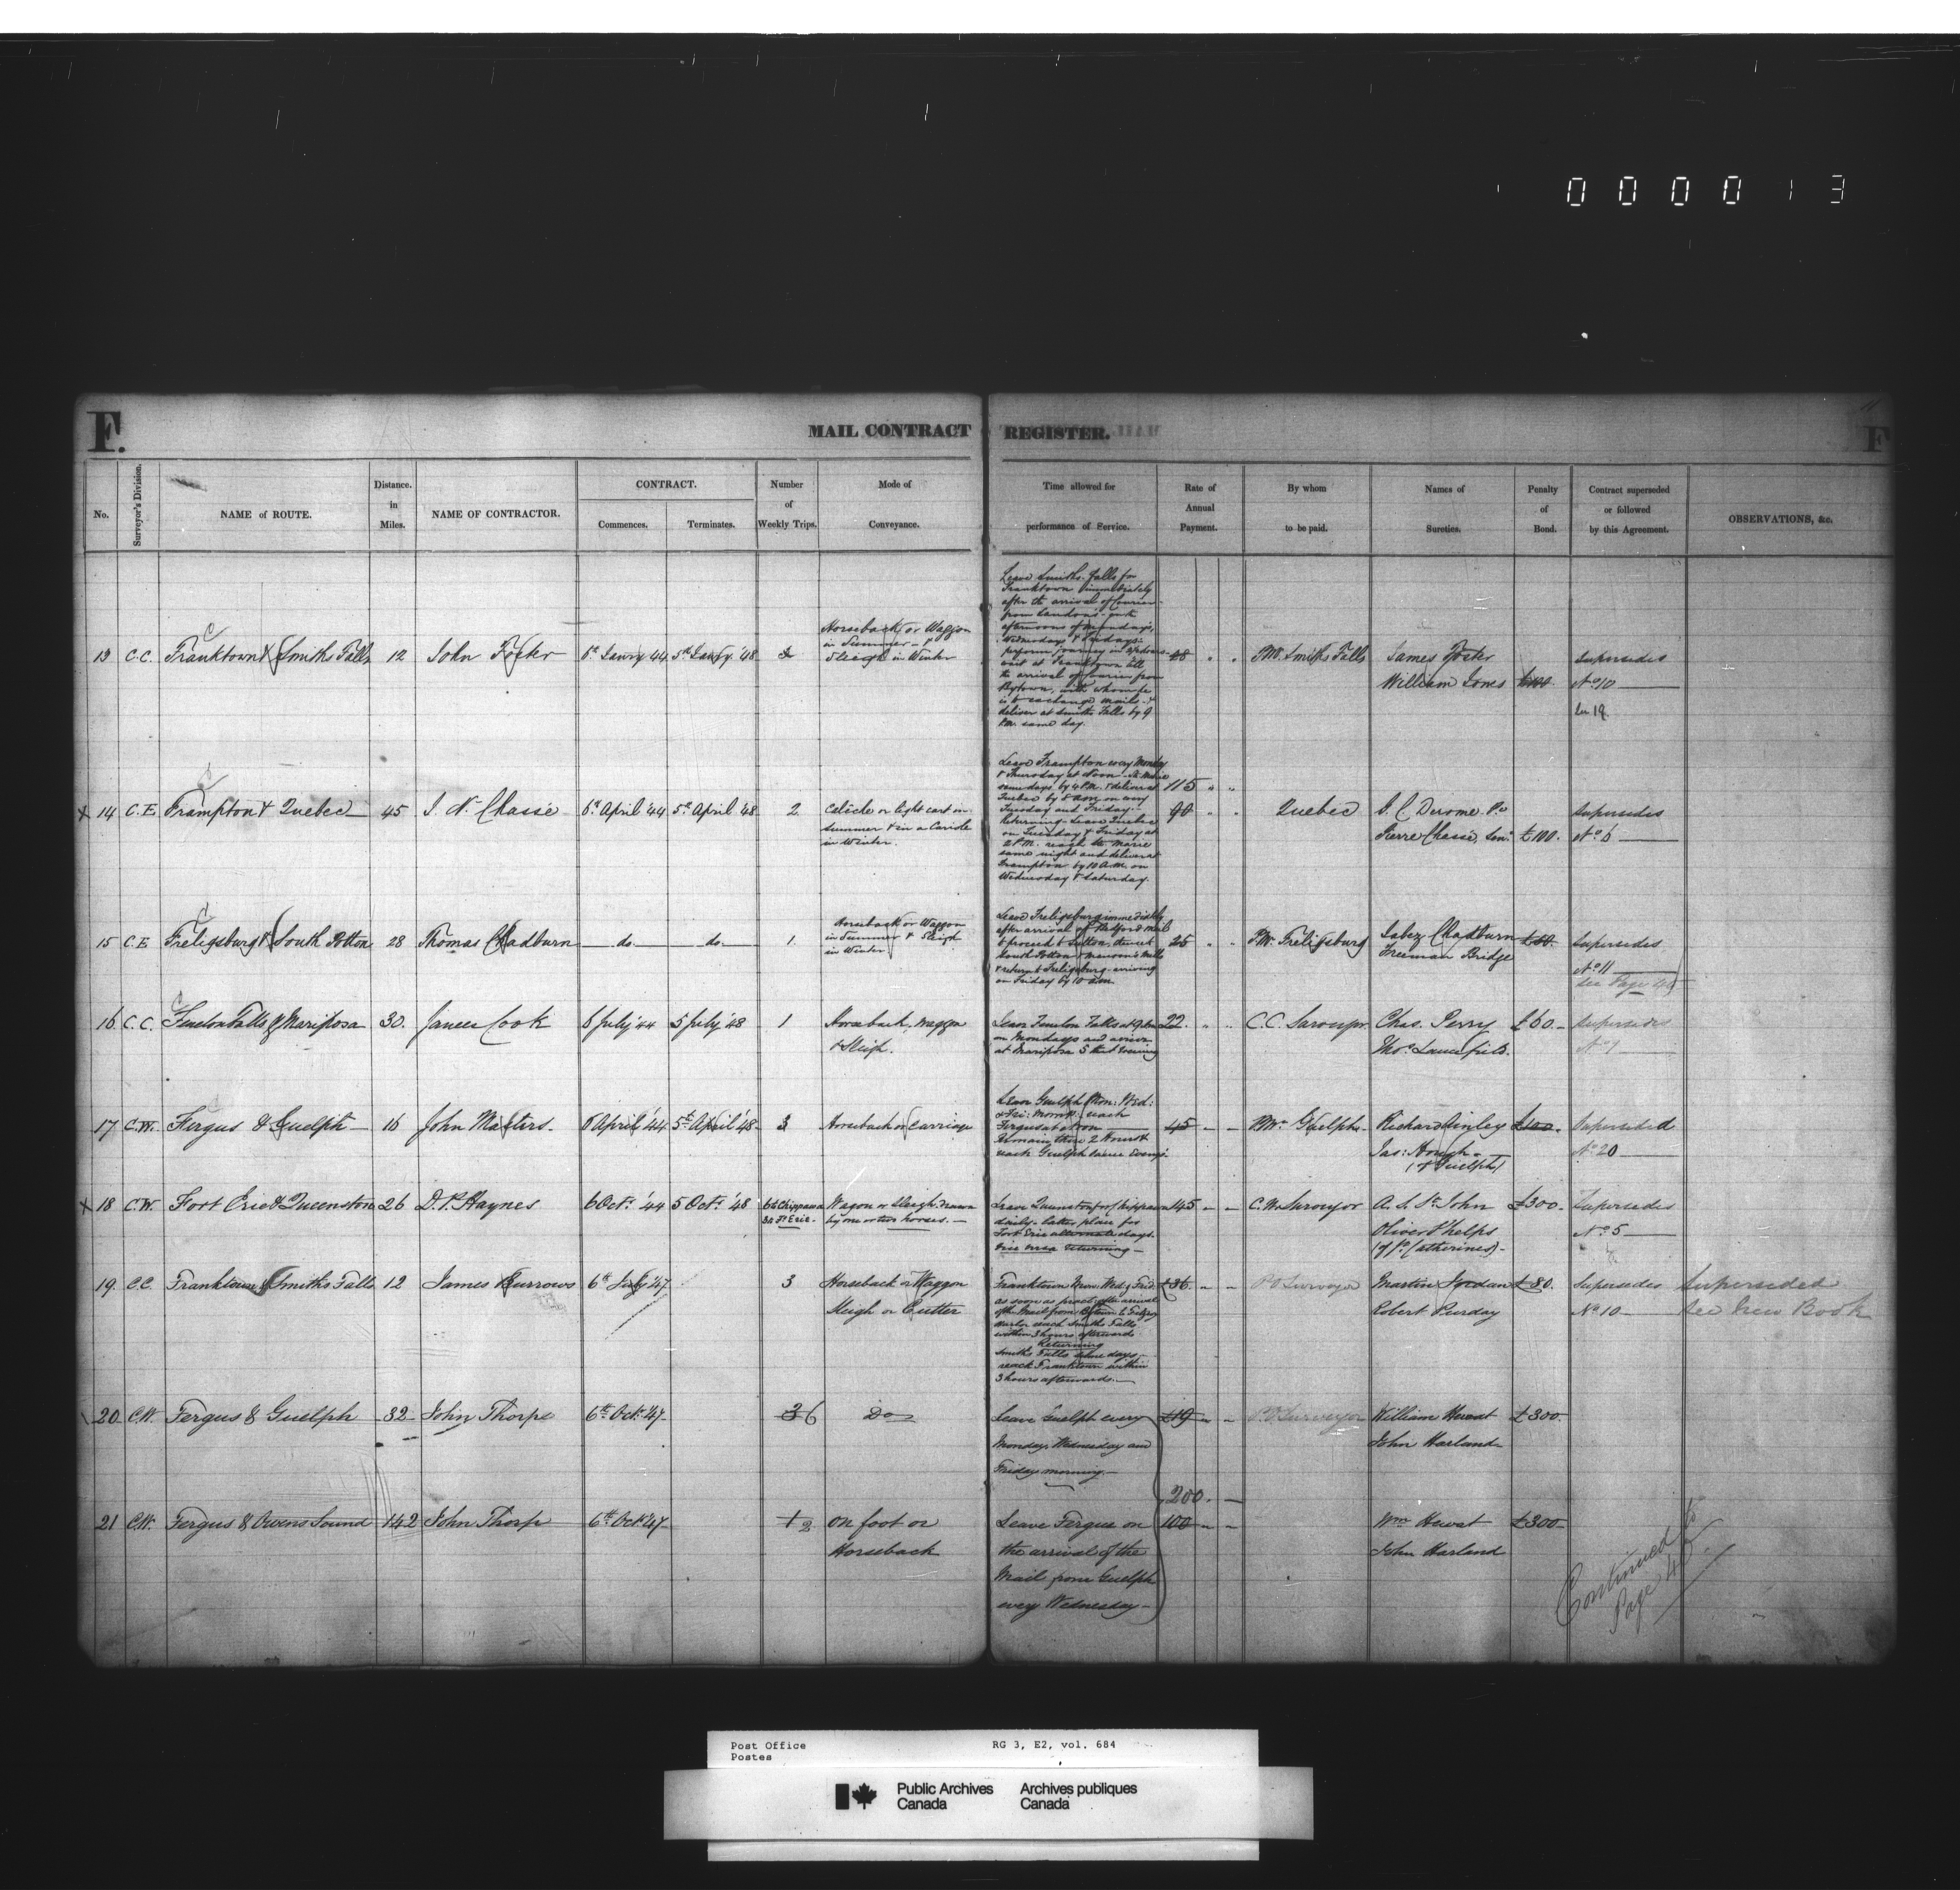 0 0 0 0 1 3
11
F.
MAIL CONTRACT REGISTER.
F
No.
Surveyor's Division.
NAME of ROUTE.
Distance. in Miles.
NAME OF CONTRACTOR.
CONTRACT.
Commences.
Terminates.
Number of Weekly Trips.
Mode of Conveyance.
Time allowed for performance of Service.
Rate of Annual Payment.
By whom to be paid.
Names of Sureties.
Penalty of Bond.
Contract superseded or followed by this Agreement.
OBSERVATIONS, &c.
13 C.C. Franktown & Smiths Falls 12 John Foster 6th Janry 44 5th Janry '48 3
Horseback or Waggon
in Summer &
Sleigh in Winter
Leave Smiths Falls for
Franktown immediately
after the arrival of Courier
from Landon's
afternoons of Mondays,
Wednesdays & Fridays
perform journey in
wait at Franktown till
the arrival of Courier from
Bytown, with whom he
is to exchange mails &
deliver at Smiths Falls by 9
P.M. same day.
48 " "
P.M. Smiths Falls
James Foster
William Jones £100
Supersedes
No 10
See 19
X 14 C.E. Frampton & Quebec 45 J. N. Chassé 6th April '44 5th April '48 2
Caleche or light cart in
Summer & in a Cariole
in Winter.
Leave Frampton every Monday
& Thursday at Noon - St. Marie
same days, by 4 P.M. & deliver at
Quebec by 8 a.m. on every
Tuesday and Friday.
Returning - Leave Quebec
on Tuesday & Friday at
2 P.M. reach Ste Marie
same night and deliver at
Frampton by 10 A.M. on
Wednesday & Saturday.
115 " "
90 " "
Quebec
Pierre Chassé, Senr. £100.
Supersedes
No 6
15 C.E. Freligsburg & South Potton 28 Thomas Chadburn do. do. 1.
Horseback or Waggon
in Summer & Sleigh
in Winter
Leave Freligsburg immediately
after arrival of Stanford mail
& proceed to Sutton, thence
South Potton & Manson's Mills
& return to Freligsburg - arriving
on Friday by 10 a.m.
25 " "
P.M. Freligsburg
Jabez Chadburn £50.
Freeman Bridge
Supersedes
No 11
See Page
16 C.C. Fenelon Falls & Mariposa 30. James Cook 6 July '44 5 July '48 1
Horseback, Waggon
& Sleigh.
Leave Fenelon Falls at 9 am
on Mondays and arrive
at Mariposa 5 that Evening
22. " "
C.C. Surveyor
Chas. Perry £60.
Supersedes
17 C.W. Fergus & Guelph 16 John Masters. 6 April '44 5th April '48 3 Horseback or Carriage
Leave Guelph Mon: Wed:
& Fri: Morngs: reach
Fergus at Noon
Remain there 2 Hours &
reach Guelph same Eveng.
45 - -
P.Mr. Guelph.
Richard Ainley £100.
Jas: Hough
(of Guelph)
Superseded
No 20
X 18 C.W. Fort Erie & Queenston 26 D. P. Haynes 6 Octr. '44 5 Octr. '48
6 to Chippawa
3 to Ft Erie.
Wagon or Sleigh drawn
by one or two horses.
Leave Queenston for Chippawa
daily. Latter place for
Fort Erie alternate days.
vice versa returning
145 - -
C.W. Surveyor
A. S. St. John £300.
Oliver Phelps
(of St. Catherines)
Supersedes
No 5
19. C.C. Franktown & Smiths Falls 12 James Burrows 6th July '47 3
Horseback or Waggon
Sleigh or Cutter
Franktown Mon. Wed. & Frid.
as soon as pract. after arrival
of the Mail from Bytown & Fitzroy
Harbor reach Smiths Falls
within 3 hours afterwards
Returning
Smiths Falls same days
reach Franktown within
3 hours afterwards.
£36. - -
P.O Surveyor
Martin Jordan £80.
Robert Purday
Supersedes
No. 10
Superseded
See New Book
20 C.W. Fergus & Guelph 32 John Thorpe 6th Oct. '47 3 6 Do
Leave Guelph every
Monday, Wednesday and
Friday morning.
£19 - -
P.O Surveyor
William Hewat £300.
John Harland
200. -
21 C.W. Fergus & Owens Sound 142 John Thorp 6th Oct '47 1 2
on foot or
Horseback
Leave Fergus on
the arrival of the
Mail from Guelph
every Wednesday
100 - -
Wm Hewat £300
John Harland
Continued to
Page 45
Post Office
Postes
RG 3, E2, vol. 684
Public Archives
Canada
Archives publiques
Canada